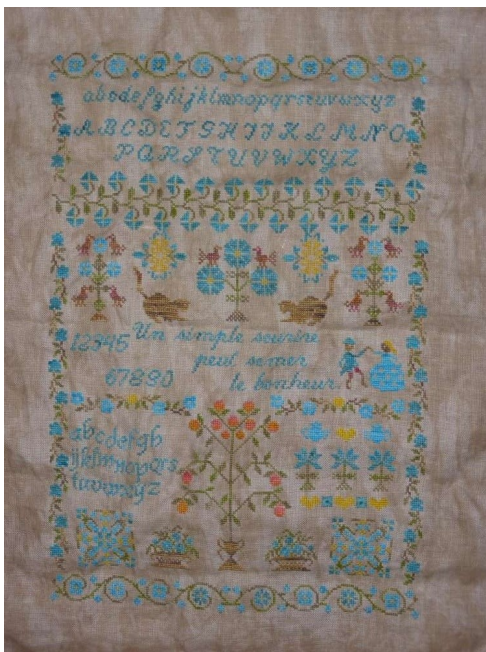 abcdefghijklmnopqrstuvwxyz
ABCDEFGHIJKLMNO
PQRSTUVWXYZ
12345 Un simple sourire
peut semer
67890 le bonheur
abcdefgh
ijklmnopqrs
tuvwxyz